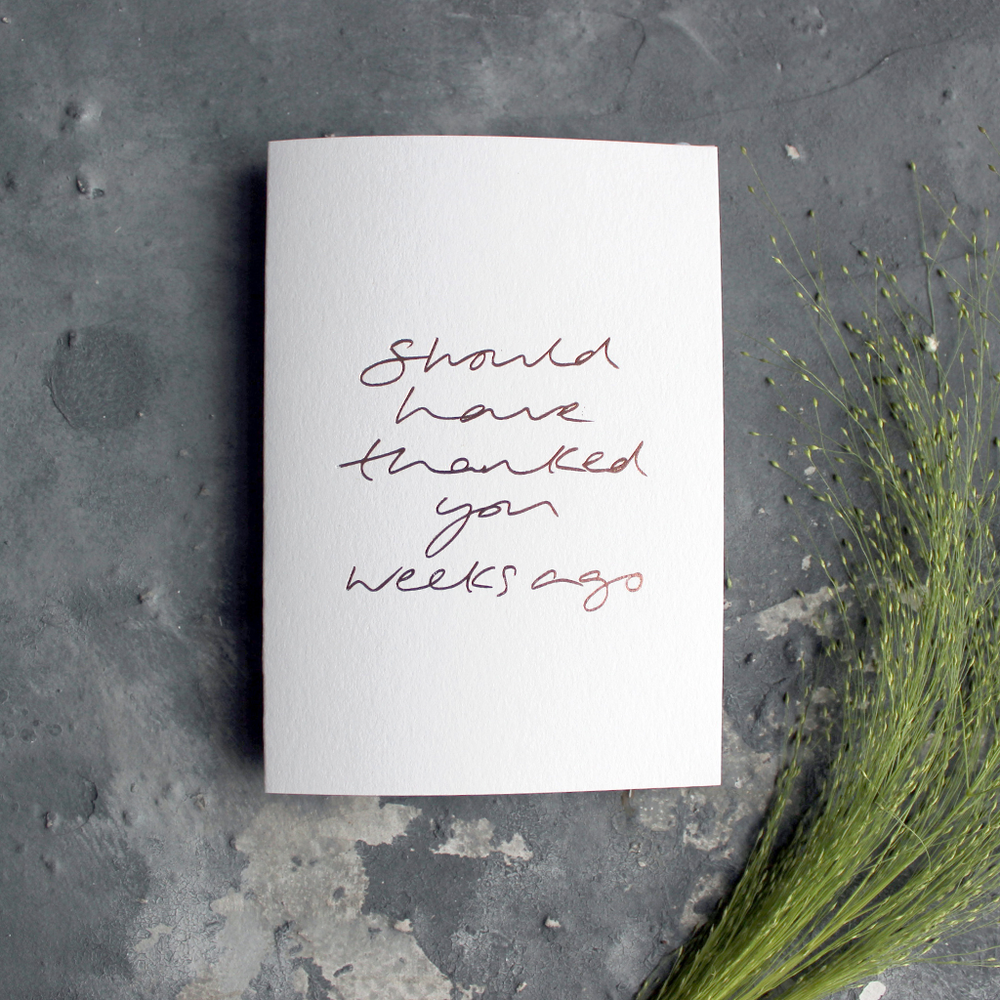 Should
have
thanked
you
weeks ago